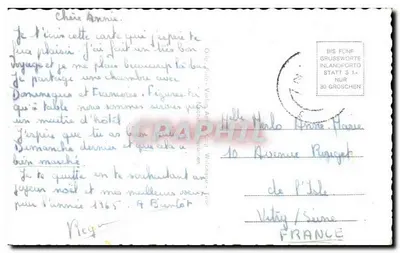 Chère Annie.
Je t'écris cette carte qui j'espère te
fera plaisir j'ai fait un très bon
voyage et je me plais beaucoup là bas
Je partage une chambre avec
Dominique et Francoise. Figures-toi
qu'à table nous sommes servies par
un maître d'hôtel
J'espère que tu as
dimanche dernier et que cela a
bien marché.
Je te quitte en te souhaitant un
joyeux noël et mes meilleurs vœux
pour l'année 1965. A Bientôt
BIS FÜNF
GRUSSWORTE
INLANDPORTO
STATT S 1.-
NUR
30 GROSCHEN
Melle Anne-Marie
10 Avenue
de l'Isle
Vitry/Seine
FRANCE
CPAPHIL